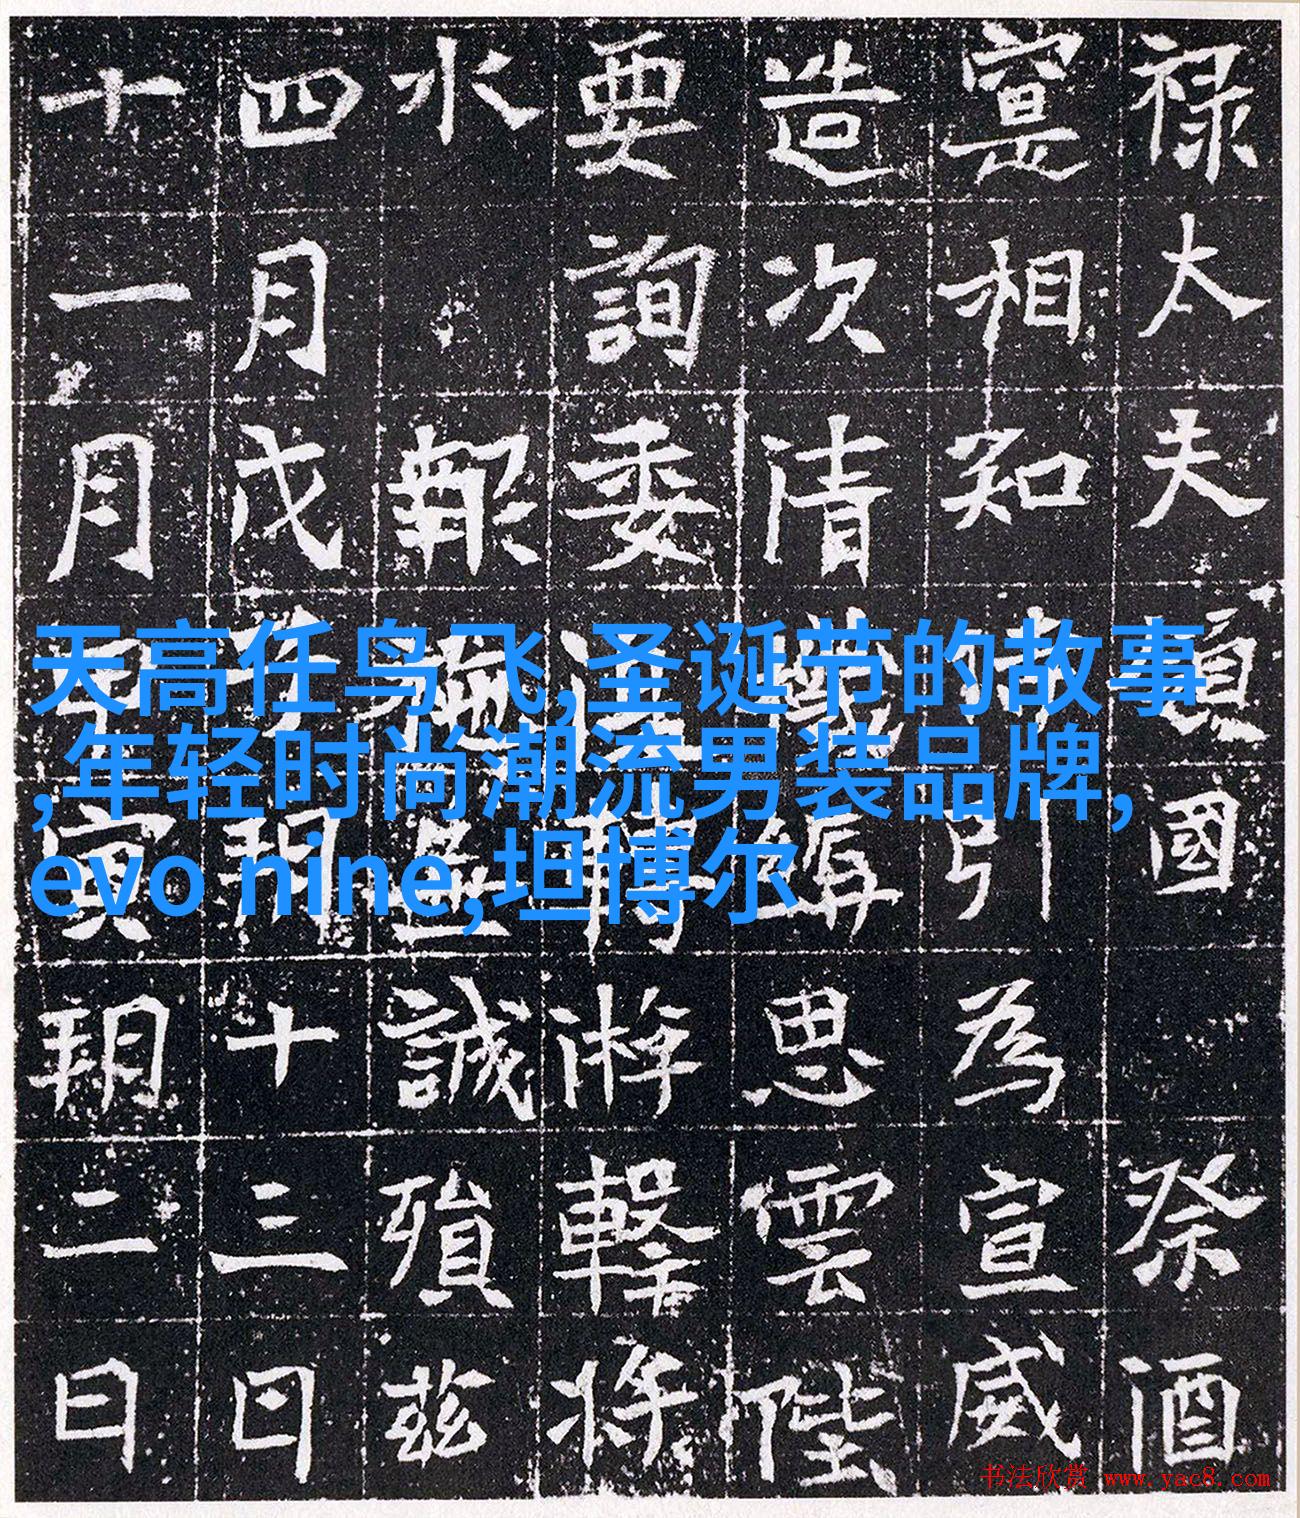 禄太夫國祭酒
寔相知引為宣威
造次清思雲陛
要詢委游擊將
水報誠殞茲
四月戊子朔十三日
十一月寅朔二日
天高任鸟飞,圣诞节的故事
,年轻时尚潮流男装品牌,
evo nine,坦博尔
书法欣赏 www.yac8.com